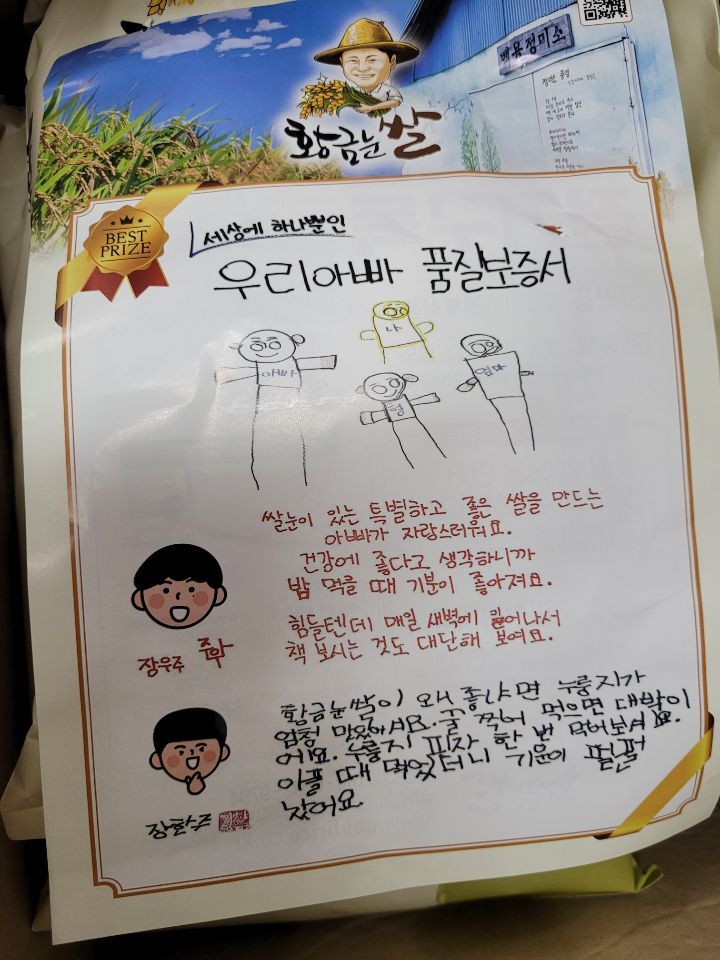 황금눈쌀
백용정미소
BEST
PRIZE
세상에 하나뿐인
우리아빠 품질보증서
아빠
나
형
엄마
쌀눈이 있는 특별하고 좋은 쌀을 만드는
아빠가 자랑스러워요.
건강에 좋다고 생각하니까
밥 먹을 때 기분이 좋아져요.
힘들텐데 매일 새벽에 일어나서
책 보시는 것도 대단해 보여요.
장우주
황금눈쌀이 왜 좋냐면 누룽지가
엄청 맛있어셔요. 꿀 찍어 먹으면 대박이
에요. 누룽지 피자 한 번 먹어보셔요.
아플 때 먹었더니 기운이 펄펄
났어요